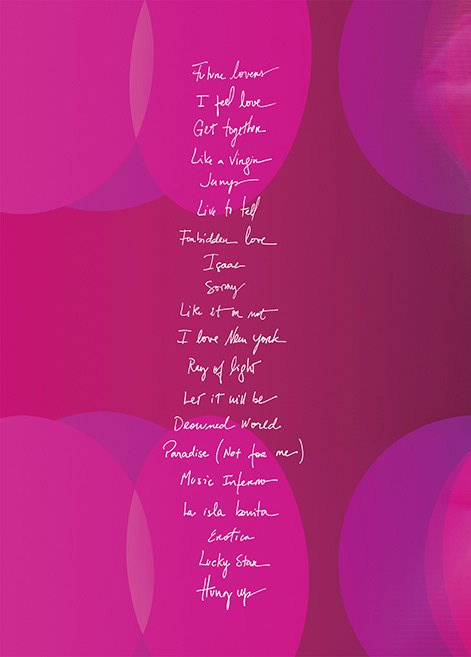 Future lovers
I feel love
Get together
Like a Virgin
Jump
Live to tell
Forbidden love
Isaac
Sorry
Like it or not
I love New York
Ray of light
Let it will be
Drowned World
Paradise (Not for me)
Music Inferno
La isla bonita
Erotica
Lucky Star
Hung up